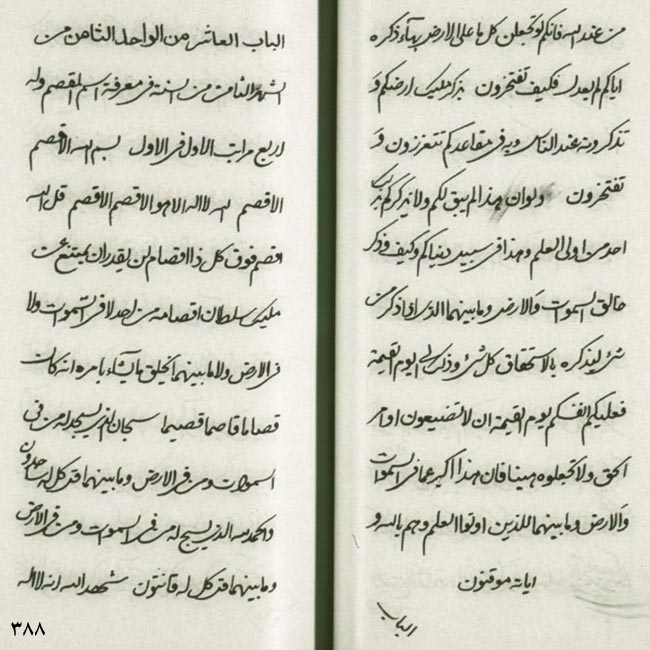 من عند الله فانكم لو تجعلن كل ما على الارض بهاء ذكره
اياكم لم يعدل فكيف تفتخرون بذكر مليك ارضكم و
تذكرونه عند الناس وبه في مقاعدكم تتعززون و
تفتخرون ولو ان هذا لم يبق لكم ولا يذكركم بذلك
احد من اولى العلم وهذا في سبيل دنياكم وكيف وذكر
خالق السموات والارض وما بينهما الذي اذا ذكر من
شئ ليذكره بالاستحقاق كل شئ وذكر الى يوم القيمة
فعليكم انفسكم يوم القيمة ان لا تضيعون اوامر
الحق ولا تجعلوه هينا فان هذا اكبر عما في السموات
والارض وما بينهما للذين اوتوا العلم وهم بالله و
اياته موقنون
الباب
الباب العاشر من الواحد الثامن من
الشهر الثامن من السنة في معرفة اسم المقصم وله
اربع مراتب الاول في الاول بسم الله الاقصم
الاقصم لله لا اله الا هو الاقصم الاقصم قل الله
اقصم فوق كل ذا اقصام لن يقدر ان يمتنع عن
مليك سلطان اقصامه من احد لا في السموات ولا
في الارض ولا ما بينهما يخلق ما يشاء بامره انه كان
قصاما قاصما قصيما سبحان الذي يسجد له من في
السموات ومن في الارض وما بينهما قل كل له ساجدون
والحمد لله الذي يسبح له من في السموات ومن في الارض
وما بينهما قل كل له قانتون شهد الله انه لا اله
٣٨٨